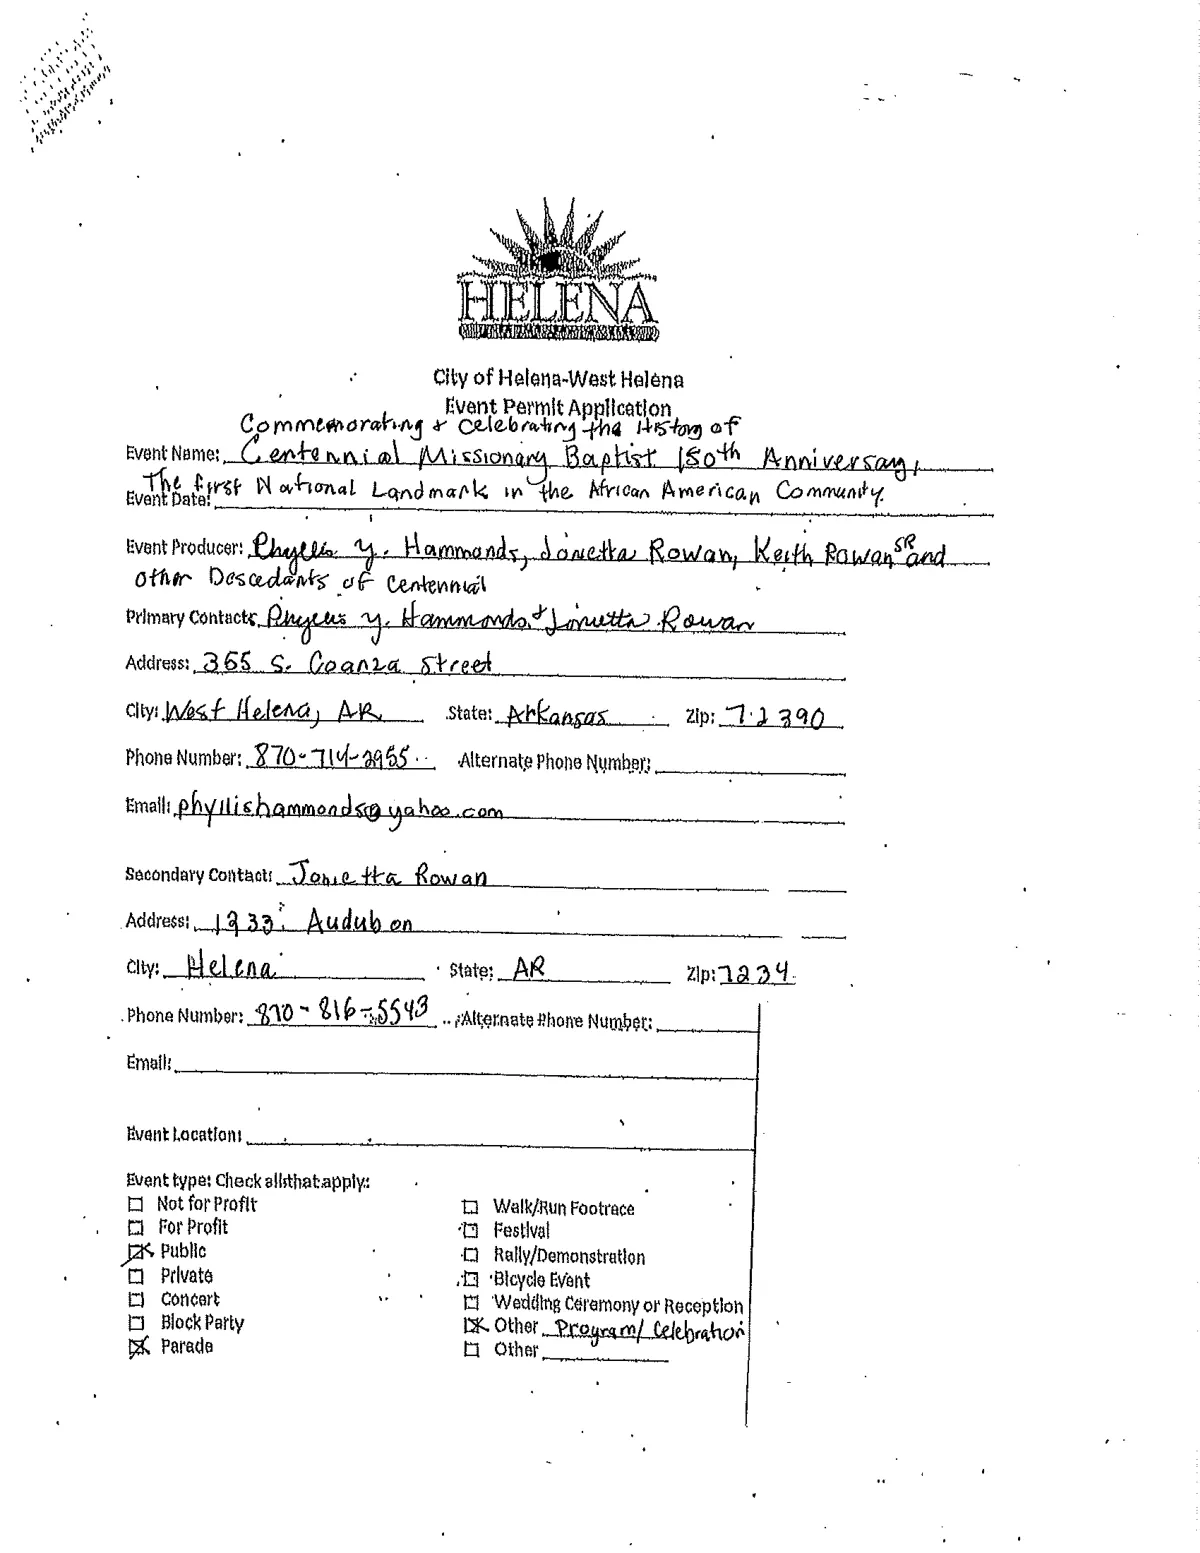 HELENA
City of Helena-West Helena
Event Permit Application
Commemorating & Celebrating the History of
Event Name: Centennial Missionary Baptist 150th Anniversary,
The first National Landmark in the African American Community.
Event Date:
Event Producer: Phyllis Y. Hammonds, Jonetta Rowan, Keith Rowan SR and
other Descedants of Centennial
Primary Contact: Phyllis Y. Hammonds & Jonetta Rowan
Address: 365 S. Coanza Street
City: West Helena, AR State: Arkansas Zip: 72390
Phone Number: 870-714-2955 Alternate Phone Number:
Email: phyllishammonds@yahoo.com
Secondary Contact: Jonetta Rowan
Address: 1233 Audubon
City: Helena State: AR Zip: 7234
Phone Number: 870-816-5543 Alternate Phone Number:
Email:
Event Location:
Event type: Check all that apply:
☐ Not for Profit ☐ Walk/Run Footrace
☐ For Profit ☐ Festival
☒ Public ☐ Rally/Demonstration
☐ Private ☐ Bicycle Event
☐ Concert ☐ Wedding Ceremony or Reception
☐ Block Party ☒ Other Program/Celebration
☒ Parade ☐ Other